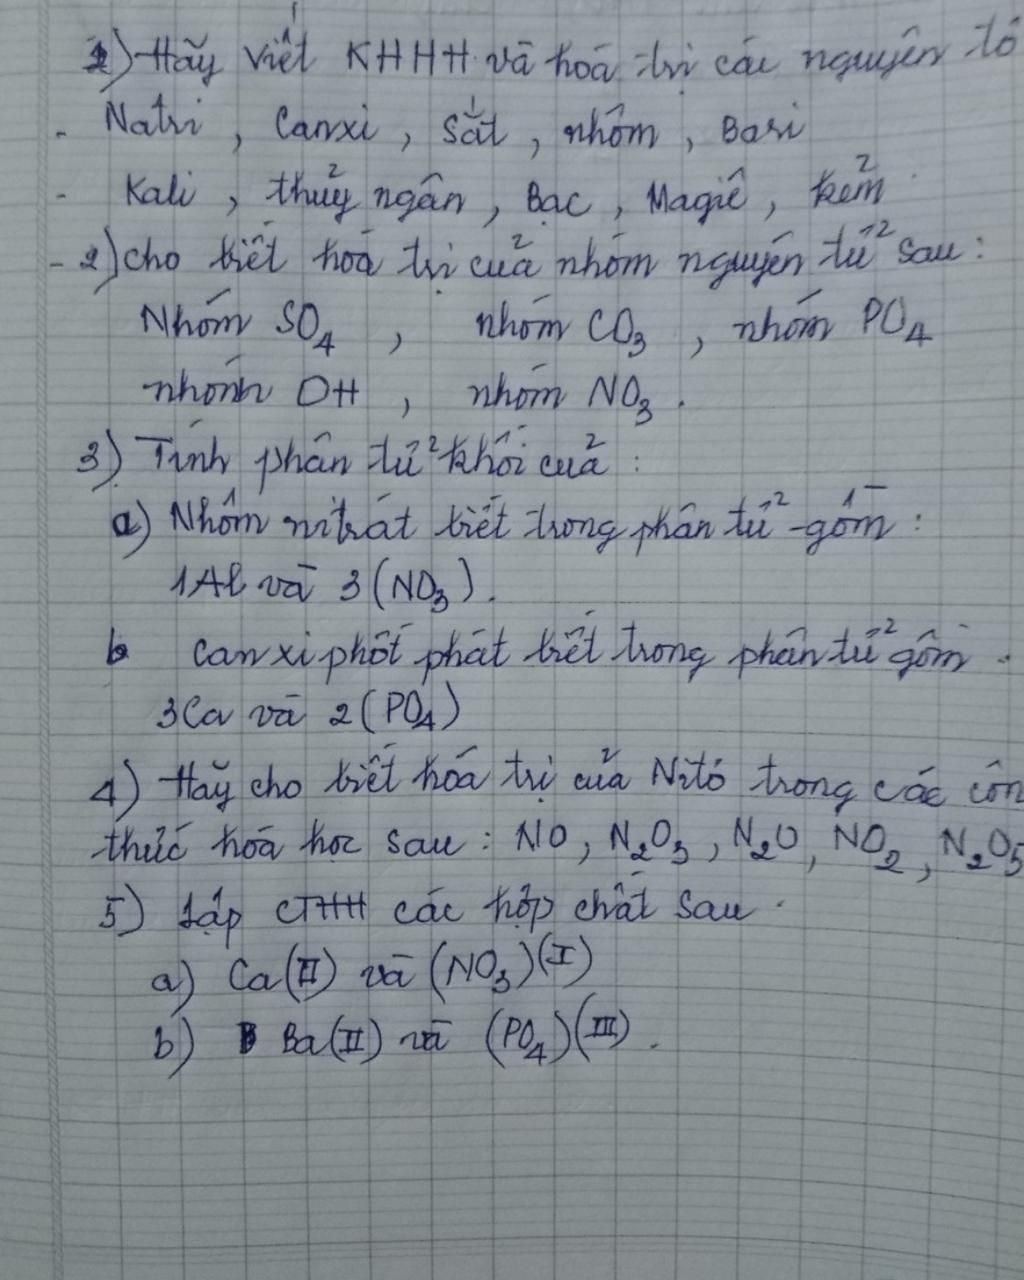 1) Hãy viết KHHH và hoá trị các nguyên tố
- Natri, Canxi, Sắt, nhôm, Bari
- Kali, thuỷ ngân, Bạc, Magiê, kẽm
- 2) cho biết hoá trị của nhóm nguyên tử sau:
Nhóm SO₄, nhóm CO₃, nhóm PO₄
nhóm OH, nhóm NO₃.
3) Tính phân tử khối của:
a) Nhôm nitrát biết trong phân tử gồm:
1Al và 3(NO₃).
b Canxi phốt phát biết trong phân tử gồm.
3Ca và 2(PO₄)
4) Hãy cho biết hóa trị của Nitơ trong các côn
thức hóa học sau: NO, N₂O₃, N₂O, NO₂, N₂O₅
5) Lập CTHH các hợp chất sau.
a) Ca(II) và (NO₃)(I)
b) Ba(II) và (PO₄)(III).